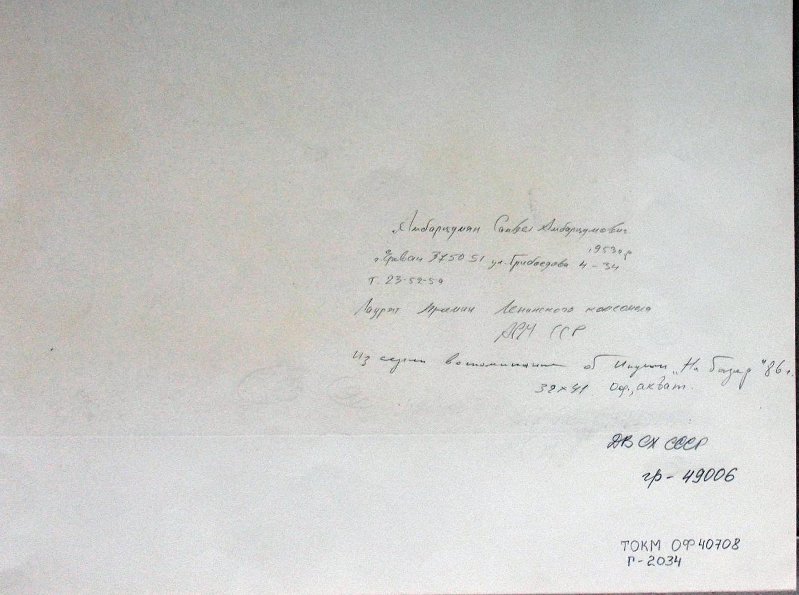 Амбарцумян Самвел Амбарцумович
1953 г.р
г. Ереван 375051 ул. Грибоедова 4-34
т. 23-52-59
Лауреат премии Ленинского комсомола
АРМ ССР
Из серии воспоминание об Индии „На базар" 86 г.
32×41 оф., акват.
ДВ СХ СССР
гр - 49006
ТОКМ ОФ 40708
Г-2034